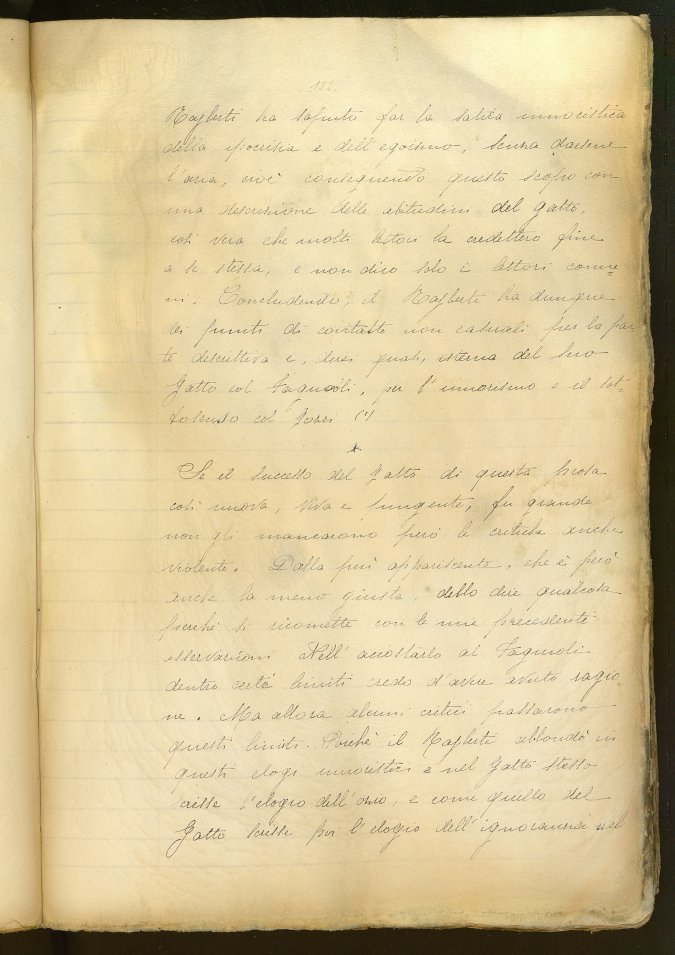 152.
Rajberti ha saputo far la satira umoristica
della ipocrisia e dell'egoismo, senza darsene
l'aria, cioè conseguendo questo scopo con
una descrizione delle abitudini del gatto,
così vera che molti lettori la credettero fine
a se stessa, e non dico solo i lettori comu-
ni. Concludendo, il Rajberti ha dunque
dei punti di contatto non casuali per la par
te descrittiva e, direi quasi, esterna del suo
Gatto col Fagiuoli, per l'umorismo e il sot-
tosenso col Gozzi (1)
*
Se il successo del Gatto di questa prosa
così nuova, viva e pungente, fu grande
non gli mancarono però le critiche anche
violente. Dalla più appariscente, che è però
anche la meno giusta, debbo dire qualcosa
perchè si riconnette con le mie precedenti
osservazioni. Nell'accostarlo al Fagiuoli
dentro certi limiti credo d'avere avuto ragio-
ne. Ma allora alcuni critici passarono
questi limiti. Poichè il Rajberti abbondò in
questi elogi umoristici e nel Gatto stesso
scrisse l'elogio dell'
 e come quello del
Gatto scrisse poi l'elogio dell'ignoranza nel